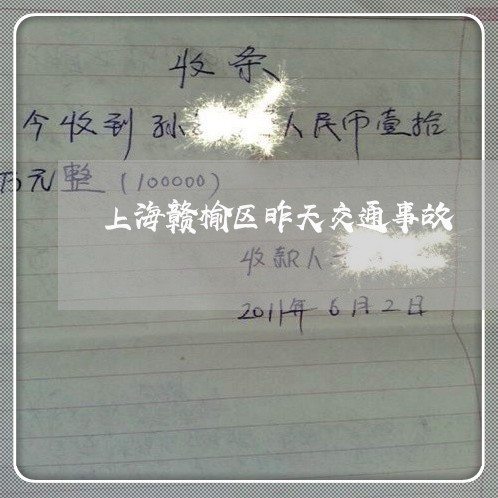 收条
今收到孙 人民币壹拾
万元整(100000)
上海赣榆区昨天交通事故
收款人
2011年6月2日